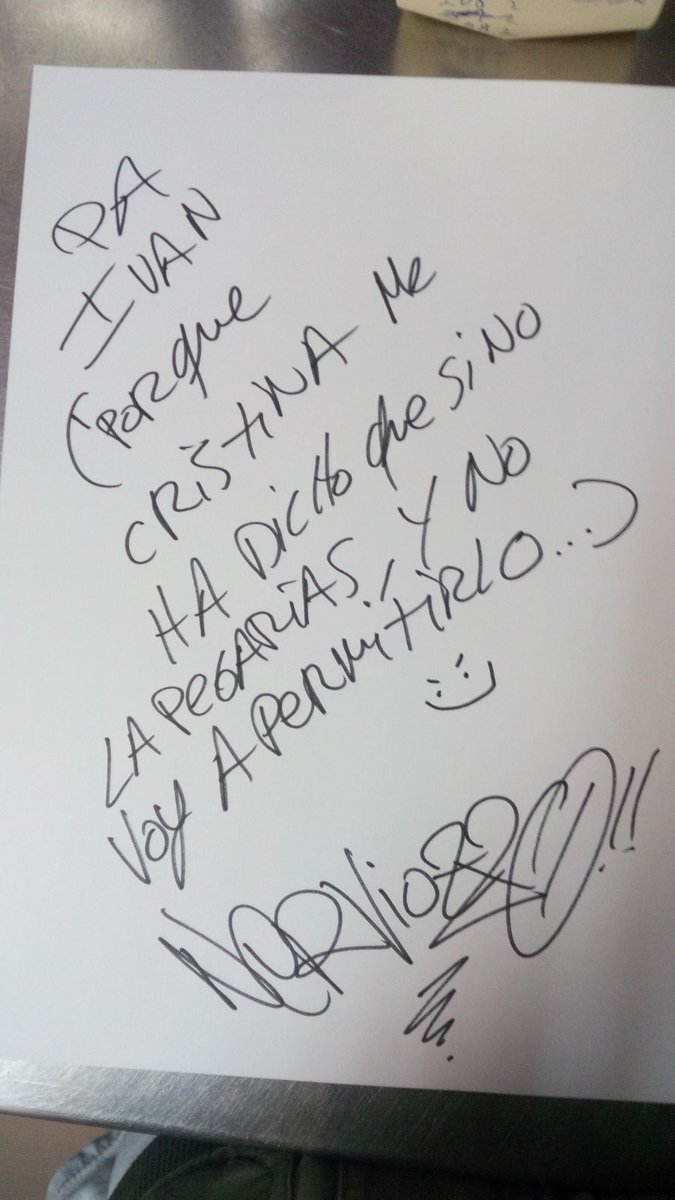 PA
IVAN
(PORque
CRISTINA Me
HA DICHO que SiNO
LA PEGARÍAS, Y NO
VOY A PERMITIRLO...)
:)
NeRVioZZO!!